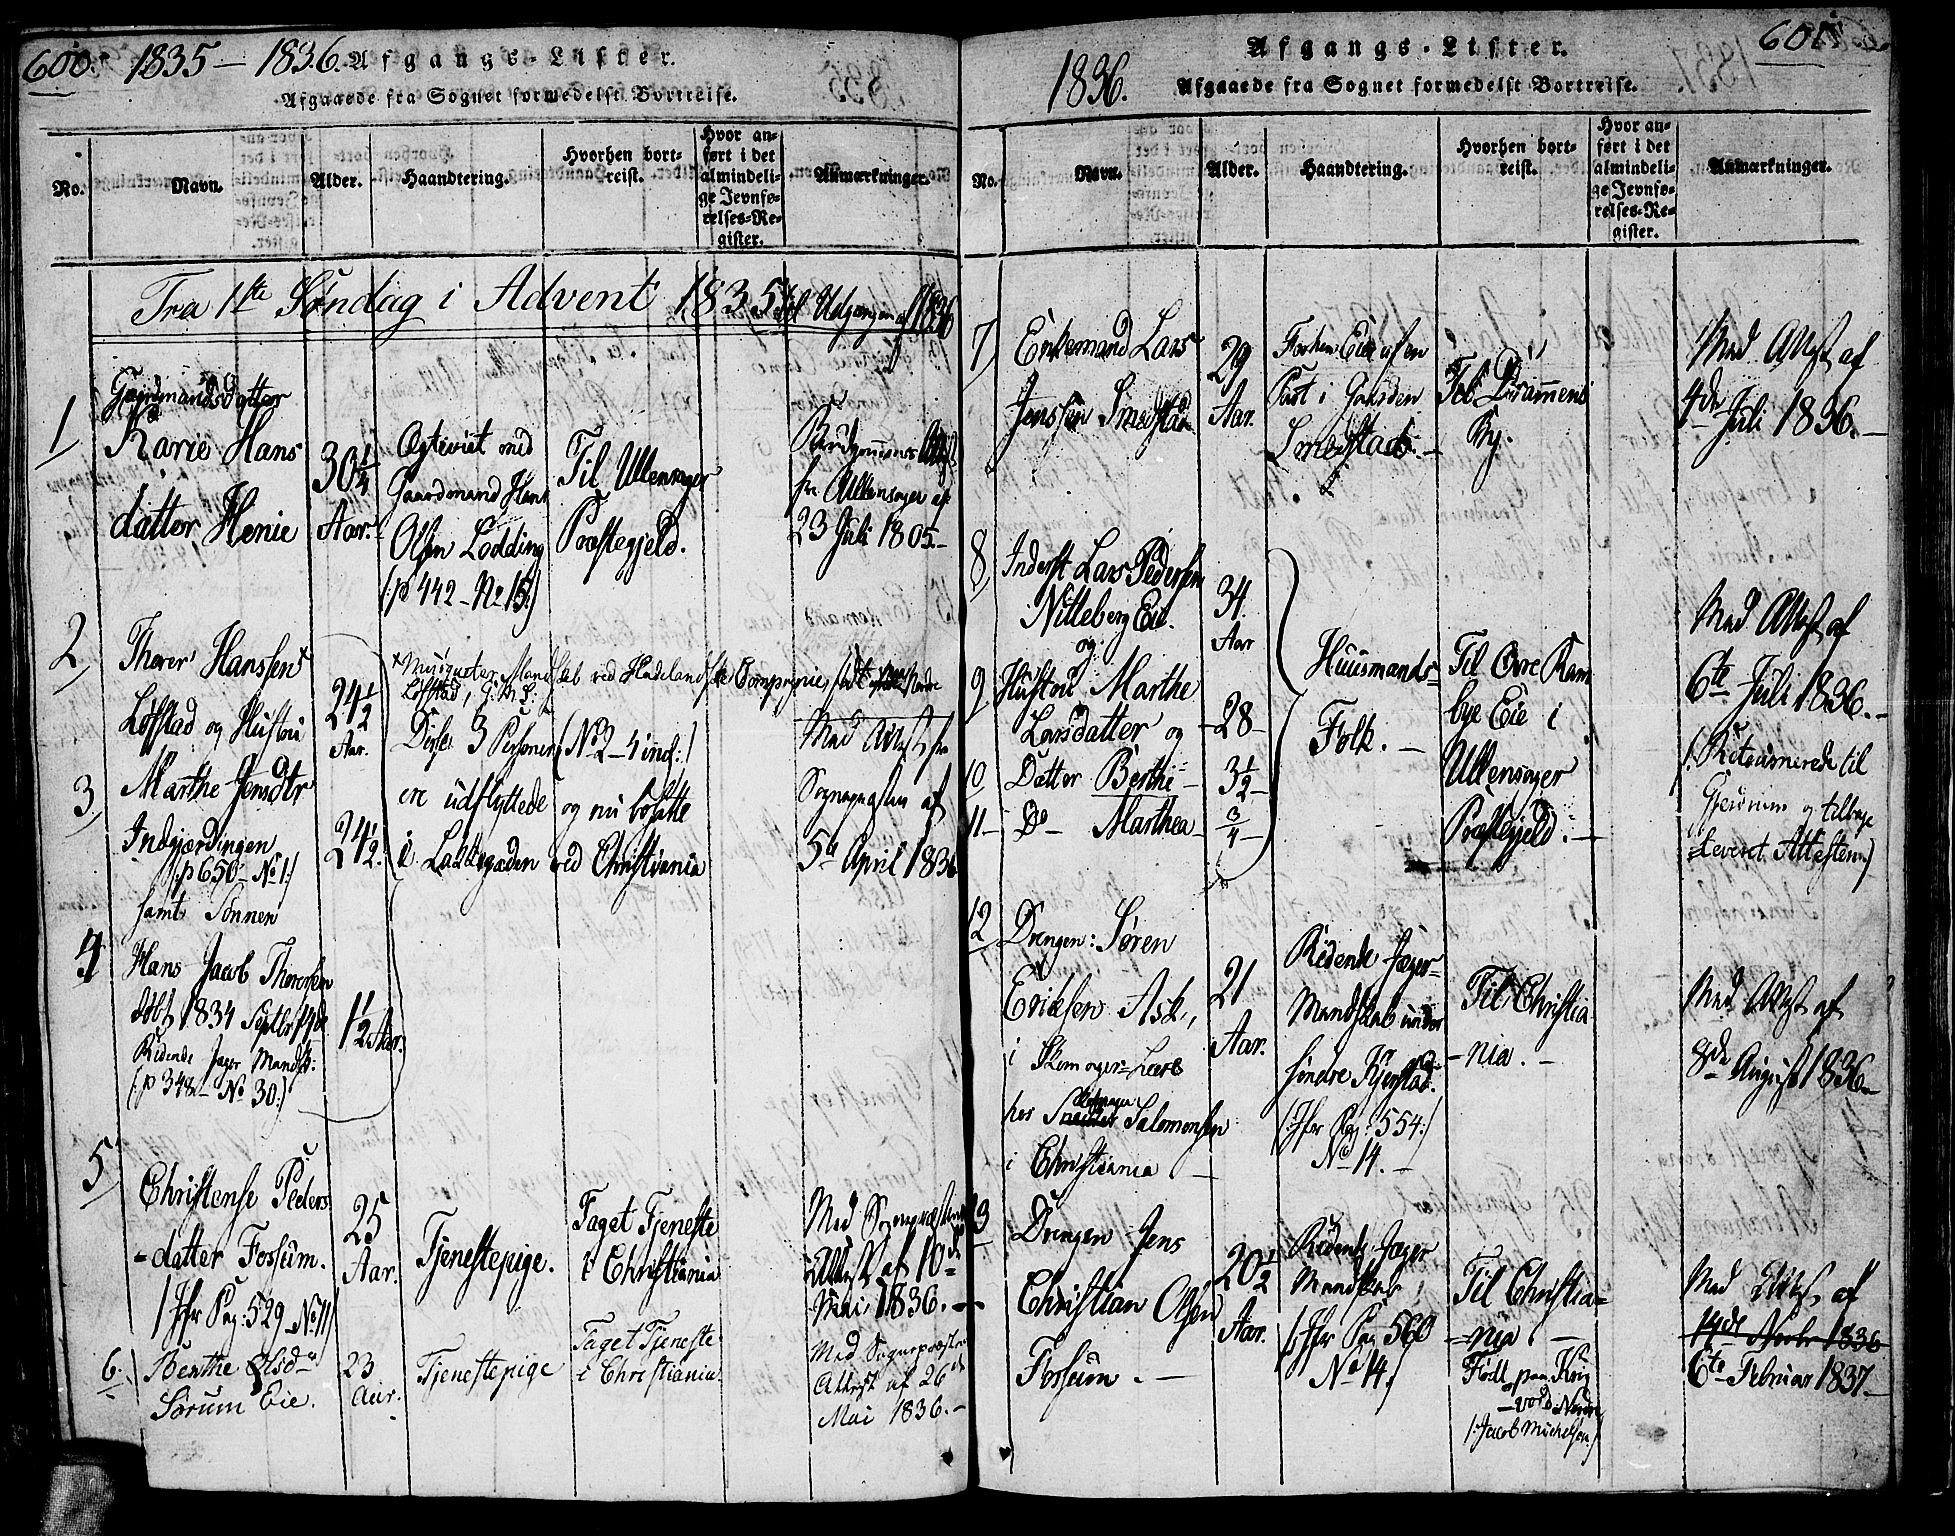 600.
1835 – 1836.
Afgangs-Lister.
Afgaaede fra Sognet formedelst Bortreise.
No.
Navn.
Alder.
Haandtering.
Hvorhen bort-
reist.
Hvor an-
ført i det
almindeli-
ge Jevnfø-
relses-Re-
gister.
Anmærkninger.
Fra 1ste Søndag i Advent 1835 til Udgangen af 1836
1
Gaardmandsdatter
Karie Hans
datter Henie
30 1/4
Aar.
Ægteviet med
Gaardmand Hans
Olsen Lødding
(:p 442 – No 15:)
Til Ullensager
Præstegjeld.
Brudgommens Attest
fra Ullensager af
23 Juli 1805.–
2
Thorer Hanssen
Løfstad og Hustru
24 1/2
Aar.
Musqueter Mandskab ved Hadelandske Compagnie,
Løfstad, G.M.L.
Disse 3 Personer (No 2 – 4 incl:)
ere udflyttede og nu bosatte
i Lakkegaden ved Christiania
Med Attest fra
Sognepræsten af
5te April 1836
3
Marthe Jensdtr
Indgjærdingen
(:p 650 – No 1:)
24 1/2
samt Sønnen
4
Hans Jacob Thoresen
døbt 1834 Septbr 14de
Ridende Jæger Mandsk:
(:p 348 – No 30:)
1 1/2 Aar.
5
Christense Peders
-datter Fossum.
/Jfr Pag: 529 No 11/
25
Aar.
Tjenestepige.
Taget Tjeneste
i Christiania
Med Sognepræstens
Attest af 10de
Mai 1836. –
6.
Berthe Olsd–
Sørum Eie.
23
Aar.
Tjenestepige
Taget Tjeneste
i Christiania
Med Sognepræstens
Attest af 26de
Mai 1836. –
1836.
Afgangs-Lister.
601
Afgaaede fra Sognet formedelst Bortreise.
No.
Navn.
Alder.
Haandtering.
Hvorhen bort-
reist.
Hvor an-
ført i det
almindeli-
ge Jevnfø-
relses-Re-
gister.
Anmærkninger.
7
Enkemand Lars
Jenssen Smedstad
29
Aar.
Forhen Eier af en
Part i Gaarden
Smedstad. –
Til Drammens
By.
Med Attest af
4de Juli 1836. –
8
Inderst Lars Pedersen
Nitteberg Eie.
og
34
Aar
Huusmands-
Folk. –
Til Øvre Ram
bye Eie i
Ullensager
Præstegjeld. –
Med Attest af
6te Juli 1836. –
/: Retournerede til
Gjerdrum og tilbage
leveret Attesten:/
9
Hustru Marthe
Larsdatter og
28
10
Datter Berthe –
3 1/2 –
11 –
Do – Marthea –
3/4 –
12
Drengen: Søren
Eriksen Ask,
i Skomager-Lære
hos Salomonsen
i Christiania –
21
Aar.
Ridende Jæger-
Mandskab under
søndre Kjerstad.
(:Jfr Pag: 554:)
No 14. –
Til Christia
-nia. –
Med Attest af
8de August 1836. –
13
Drengen Jens
Christian Olsen
Fossum. –
20 1/2
Aar.
Ridende Jæger
Mandskab
(:Jfr Pag 560
No 14.)
Til Christia-
-nia –
Født paa Krog
-vold Nordre
/:Jacob Michelsen:/
Med Attest af
14de Novbr 1836
6te Februar 1837. –